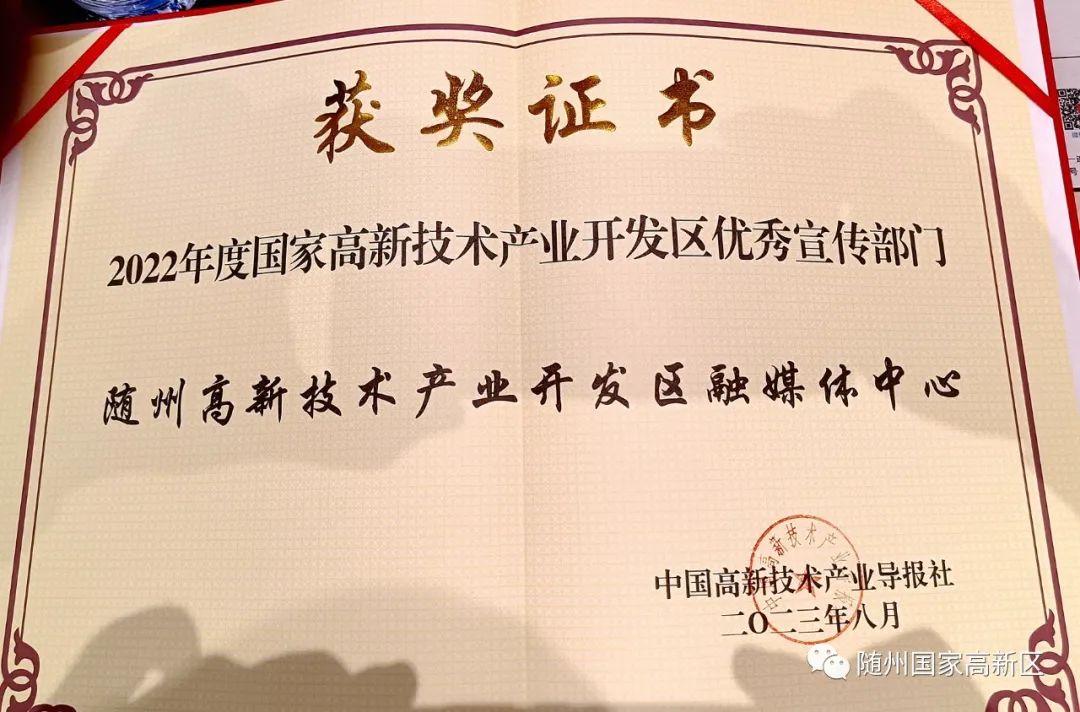 获奖证书
2022年度国家高新技术产业开发区优秀宣传部门
随州高新技术产业开发区融媒体中心
中国高新技术产业导报社
二〇二三年八月
随州国家高新区